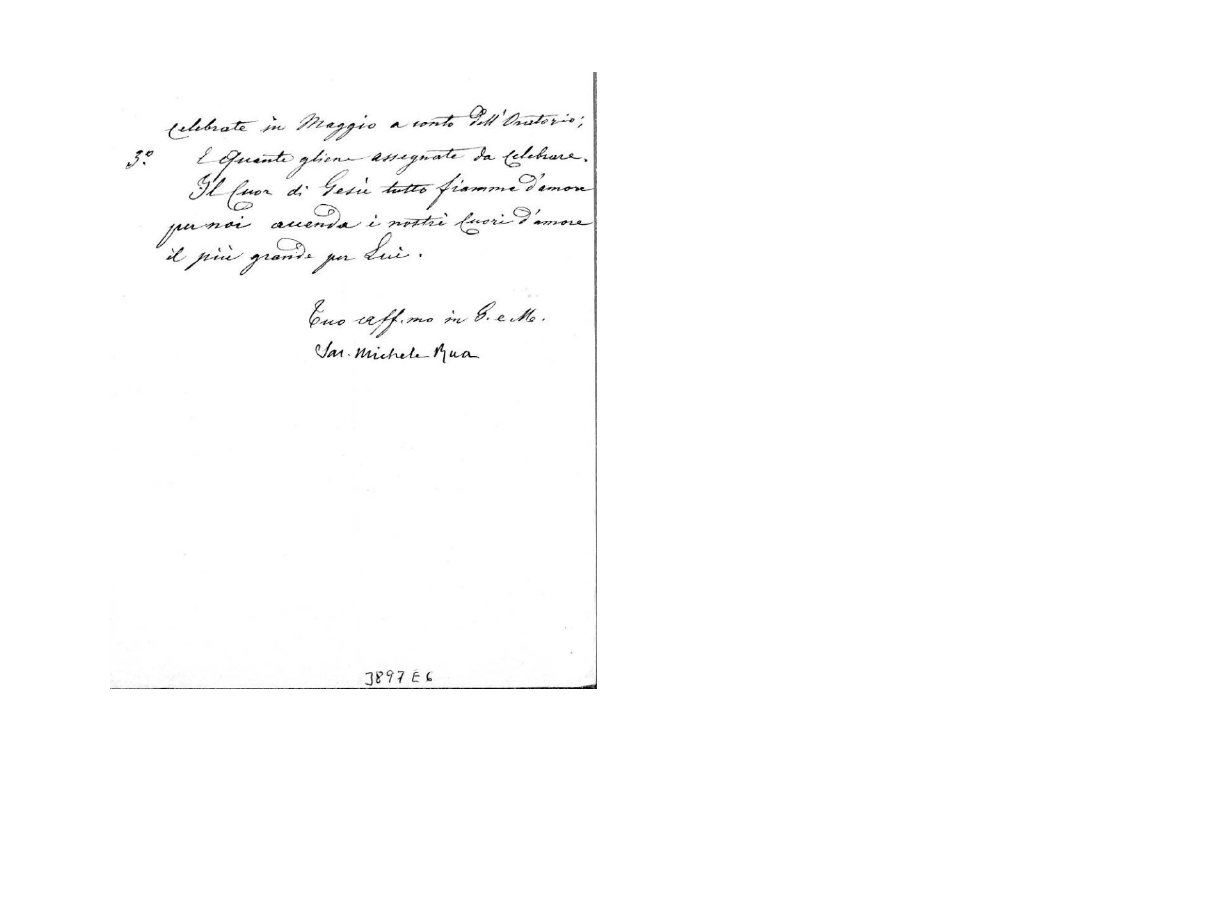 celebrate in Maggio a conto dell'Oratorio;
3.º E Quante gliene assegnate da celebrare.
Il Cuor di Gesù tutto fiamme d'amore
per noi accenda i nostri Cuori d'amore
il più grande per Lui.
Tuo aff.mo in G. e M.
Sac. Michele Rua
3897 E 6